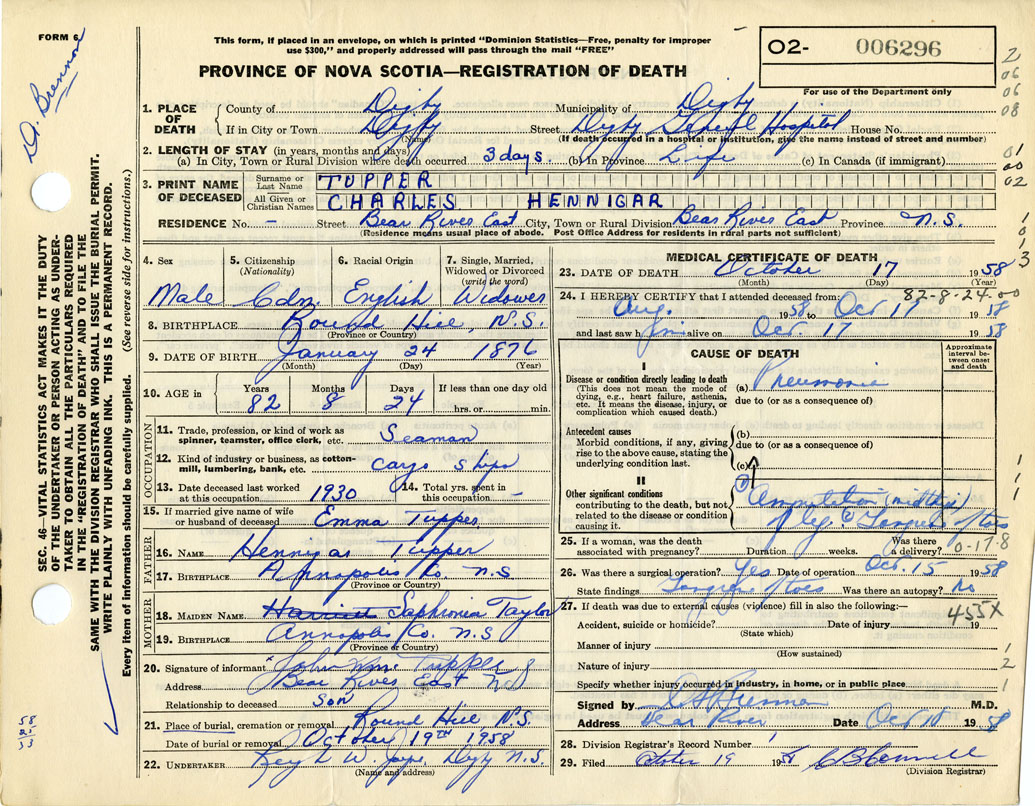 FORM 6
This form, if placed in an envelope, on which is printed "Dominion Statistics—Free, penalty for improper
use $300," and properly addressed will pass through the mail "FREE"
PROVINCE OF NOVA SCOTIA—REGISTRATION OF DEATH
O2- 006296
For use of the Department only
1. PLACE OF DEATH { County of Digby Municipality of Digby
If in City or Town Digby Street Digby General Hospital House No.
(Name) (If death occurred in a hospital or institution, give the name instead of street and number)
2. LENGTH OF STAY (in years, months and days)
(a) In City, Town or Rural Division where death occurred 3 days. (b) In Province Life (c) In Canada (if immigrant)
3. PRINT NAME OF DECEASED { Surname or Last Name TUPPER
All Given or Christian Names CHARLES HENNIGAR
RESIDENCE No. - Street Bear River East City, Town or Rural Division Bear River East Province N.S.
(Residence means usual place of abode. Post Office Address for residents in rural parts not sufficient)
4. Sex Male
5. Citizenship (Nationality) Cdn.
6. Racial Origin English
7. Single, Married, Widowed or Divorced (write the word) Widower
8. BIRTHPLACE Round Hill, N.S.
(Province or Country)
9. DATE OF BIRTH January 24 1876
(Month) (Day) (Year)
10. AGE in Years 82 Months 8 Days 24 If less than one day old hrs. or min.
OCCUPATION
11. Trade, profession, or kind of work as spinner, teamster, office clerk, etc. Seaman
12. Kind of industry or business, as cotton-mill, lumbering, bank, etc. cargo ships
13. Date deceased last worked at this occupation 1930 14. Total yrs. spent in this occupation -
15. If married give name of wife or husband of deceased Emma Tupper
FATHER
16. NAME Hennigar Tupper
17. BIRTHPLACE Annapolis Co. N.S
(Province or Country)
MOTHER
18. MAIDEN NAME Harriet Saphronia Taylor
19. BIRTHPLACE Annapolis Co. N.S
(Province or Country)
20. Signature of informant John Wm. Tupper
Address Bear River East NS
Relationship to deceased Son
21. Place of burial, cremation or removal Round Hill N.S.
Date of burial or removal October 19TH 1958
22. UNDERTAKER W. Digby N.S.
(Name and address)
MEDICAL CERTIFICATE OF DEATH
23. DATE OF DEATH October 17 1958
(Month) (Day) (Year)
82-8-24-00
24. I HEREBY CERTIFY that I attended deceased from:
Aug. 1958 to Oct 17 1958
and last saw him alive on Oct. 17 1958
CAUSE OF DEATH
Approximate interval between onset and death
I
Disease or condition directly leading to death
(This does not mean the mode of dying, e.g., heart failure, asthenia, etc. It means the disease, injury, or complication which caused death.)
(a) Pneumonia
due to (or as a consequence of)
Antecedent causes
Morbid conditions, if any, giving rise to the above cause, stating the underlying condition last.
(b)
due to (or as a consequence of)
(c)
II
Other significant conditions
contributing to the death, but not related to the disease or condition causing it.
Amputation (midthigh)
of leg c Gangrene of toes
25. If a woman, was the death associated with pregnancy? Duration weeks. Was there a delivery?
0-17-8
26. Was there a surgical operation? Yes Date of operation Oct. 15 1958
State findings Gangrene of toes Was there an autopsy? No
27. If death was due to external causes (violence) fill in also the following:—
455X
Accident, suicide or homicide? Date of injury 19
(State which)
Manner of injury
(How sustained)
Nature of injury
Specify whether injury occurred in industry, in home, or in public place
Signed by M.D.
Address Bear River Date Oct 18 1958
28. Division Registrar's Record Number
29. Filed October 19 1958
(Division Registrar)
SEC. 46—VITAL STATISTICS ACT MAKES IT THE DUTY
OF THE UNDERTAKER OR PERSON ACTING AS UNDER-
TAKER TO OBTAIN ALL THE PARTICULARS REQUIRED
IN THE "REGISTRATION OF DEATH" AND TO FILE THE
SAME WITH THE DIVISION REGISTRAR WHO SHALL ISSUE THE BURIAL PERMIT.
WRITE PLAINLY WITH UNFADING INK. THIS IS A PERMANENT RECORD.
Every item of information should be carefully supplied. (See reverse side for instructions.)
2
06
06
08
01
00
02
1
0
1
3
1
1
1
1
2
1
58